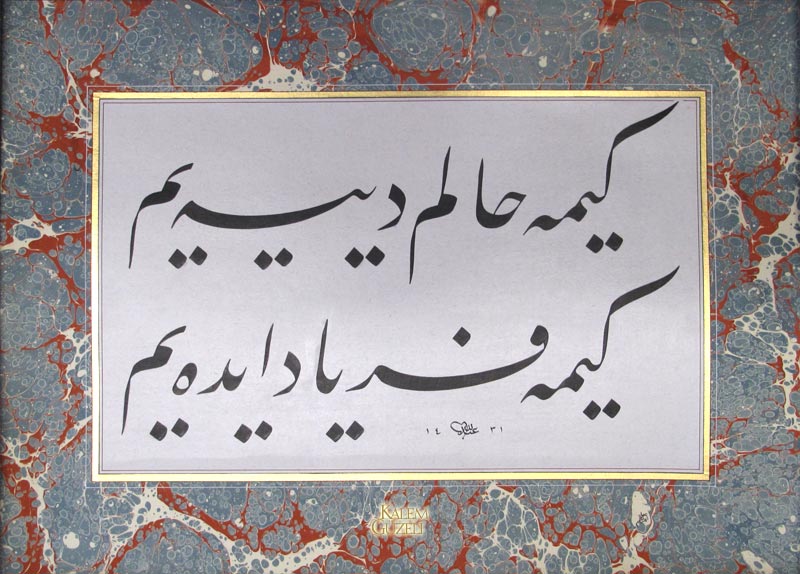 کیمه حالم دییه یم
کیمه فریاد ایده یم
١٤ ٣١
KALEM
GÜZELİ